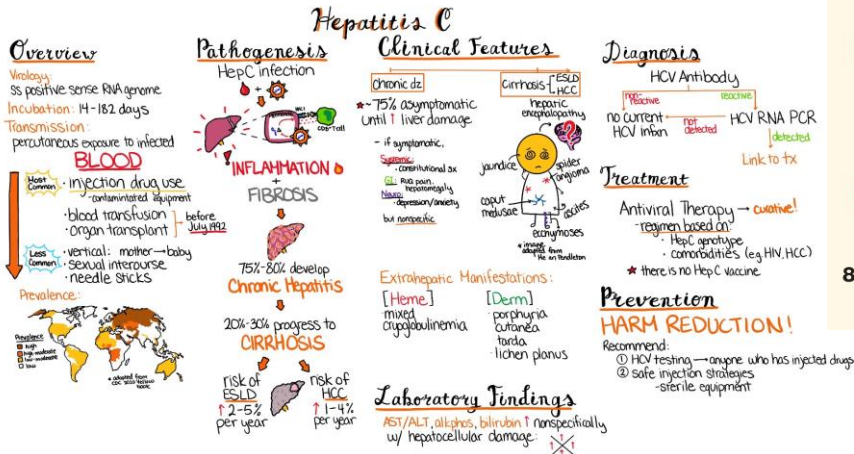 Hepatitis C
Overview
Virology:
ss positive sense RNA genome
Incubation: 14-182 days
Transmission:
percutaneous exposure to infected
BLOOD
Most Common
· injection drug use
-contaminated equipment
· blood transfusion
· organ transplant
before July 1992
Less Common
· vertical: mother → baby
· sexual intercourse
· needle sticks
Prevalence:
Prevalence
high
high-moderate
low-moderate
low
* adapted from
CDC 2020 Yellow
Book
Pathogenesis
HepC infection
+
MHC I
CD8-Tcell
INFLAMMATION
+
FIBROSIS
75%-80% develop
Chronic Hepatitis
20%-30% progress to
CIRRHOSIS
risk of
ESLD
↑ 2-5%
per year
risk of
HCC
↑ 1-4%
per year
Clinical Features
Chronic dz
★~75% asymptomatic
until ↑ liver damage
- if symptomatic,
Systemic:
· constitutional sx
GI: RUQ pain,
hepatomegaly
Neuro:
· depression/anxiety
but nonspecific
Cirrhosis
ESLD
HCC
hepatic
encephalopathy
?
jaundice
spider
angioma
caput
medusae
ascites
ecchymoses
* image
adapted from
Pendleton
Extrahepatic Manifestations:
[Heme]
· mixed
cryoglobulinemia
[Derm]
· porphyria
cutanea
tarda
· lichen planus
Laboratory Findings
AST/ALT, alkphos, bilirubin ↑ nonspecifically
w/ hepatocellular damage:
Diagnosis
HCV Antibody
non-
reactive
reactive
no current
HCV infxn
not
detected
HCV RNA PCR
detected
Link to tx
Treatment
Antiviral Therapy → curative!
- regimen based on:
· HepC genotype
· comorbidities (e.g. HIV, HCC)
★ there is no HepC vaccine
Prevention
HARM REDUCTION!
Recommend:
① HCV testing → anyone who has injected drugs
② safe injection strategies
-sterile equipment
8